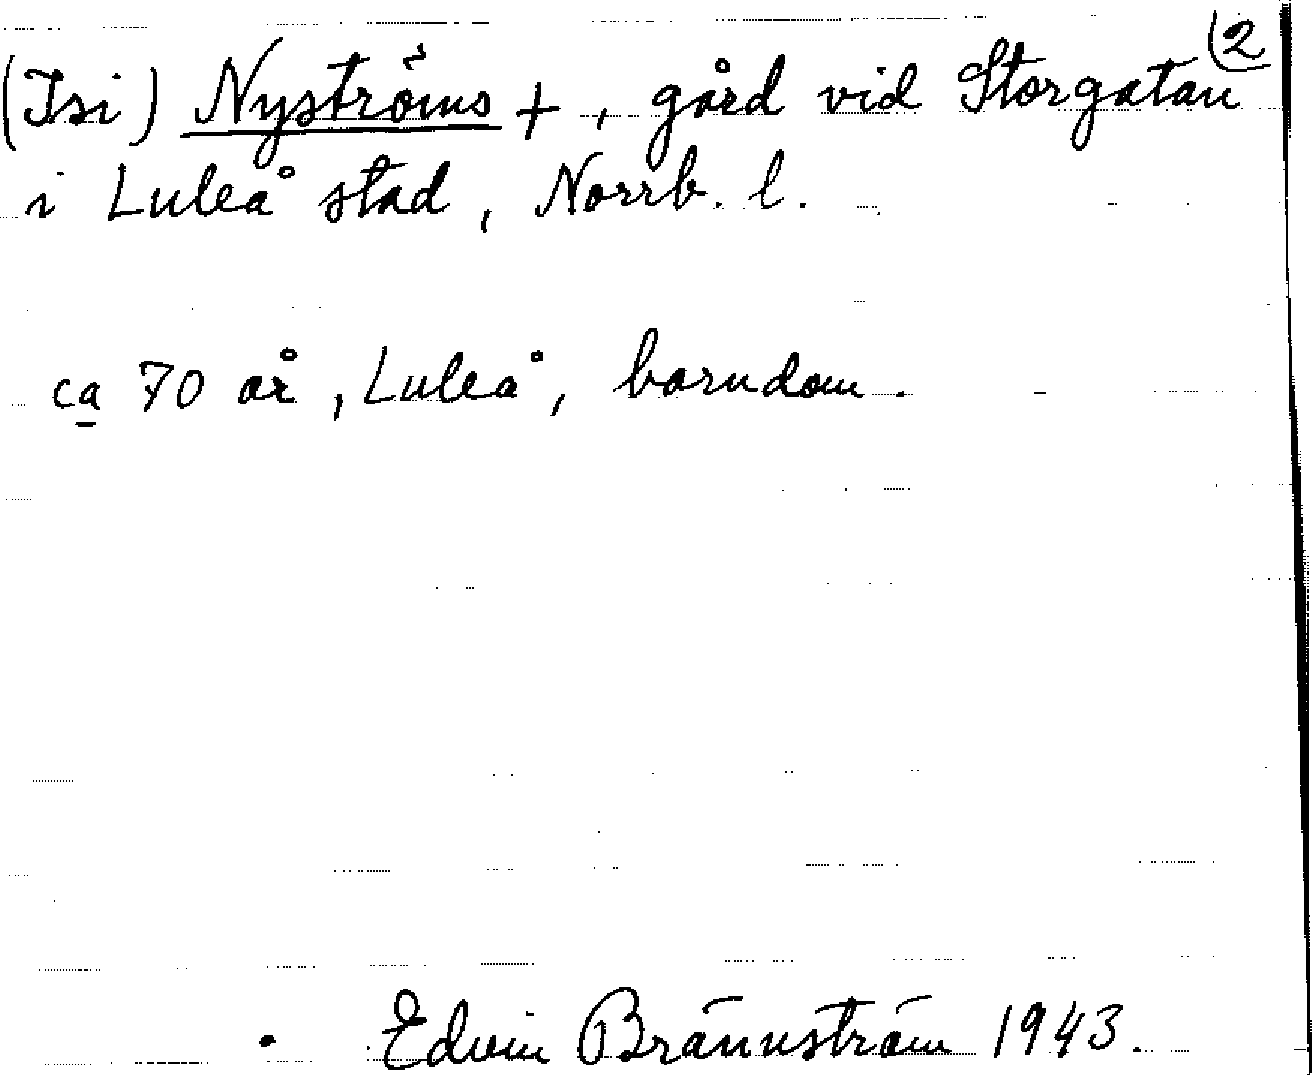 (2
(Isi) Nyströms +, gård vid Storgatan
i Luleå stad, Norrb. l.
ca 70 år, Luleå, barndom.
Edvin Brännström 1943.